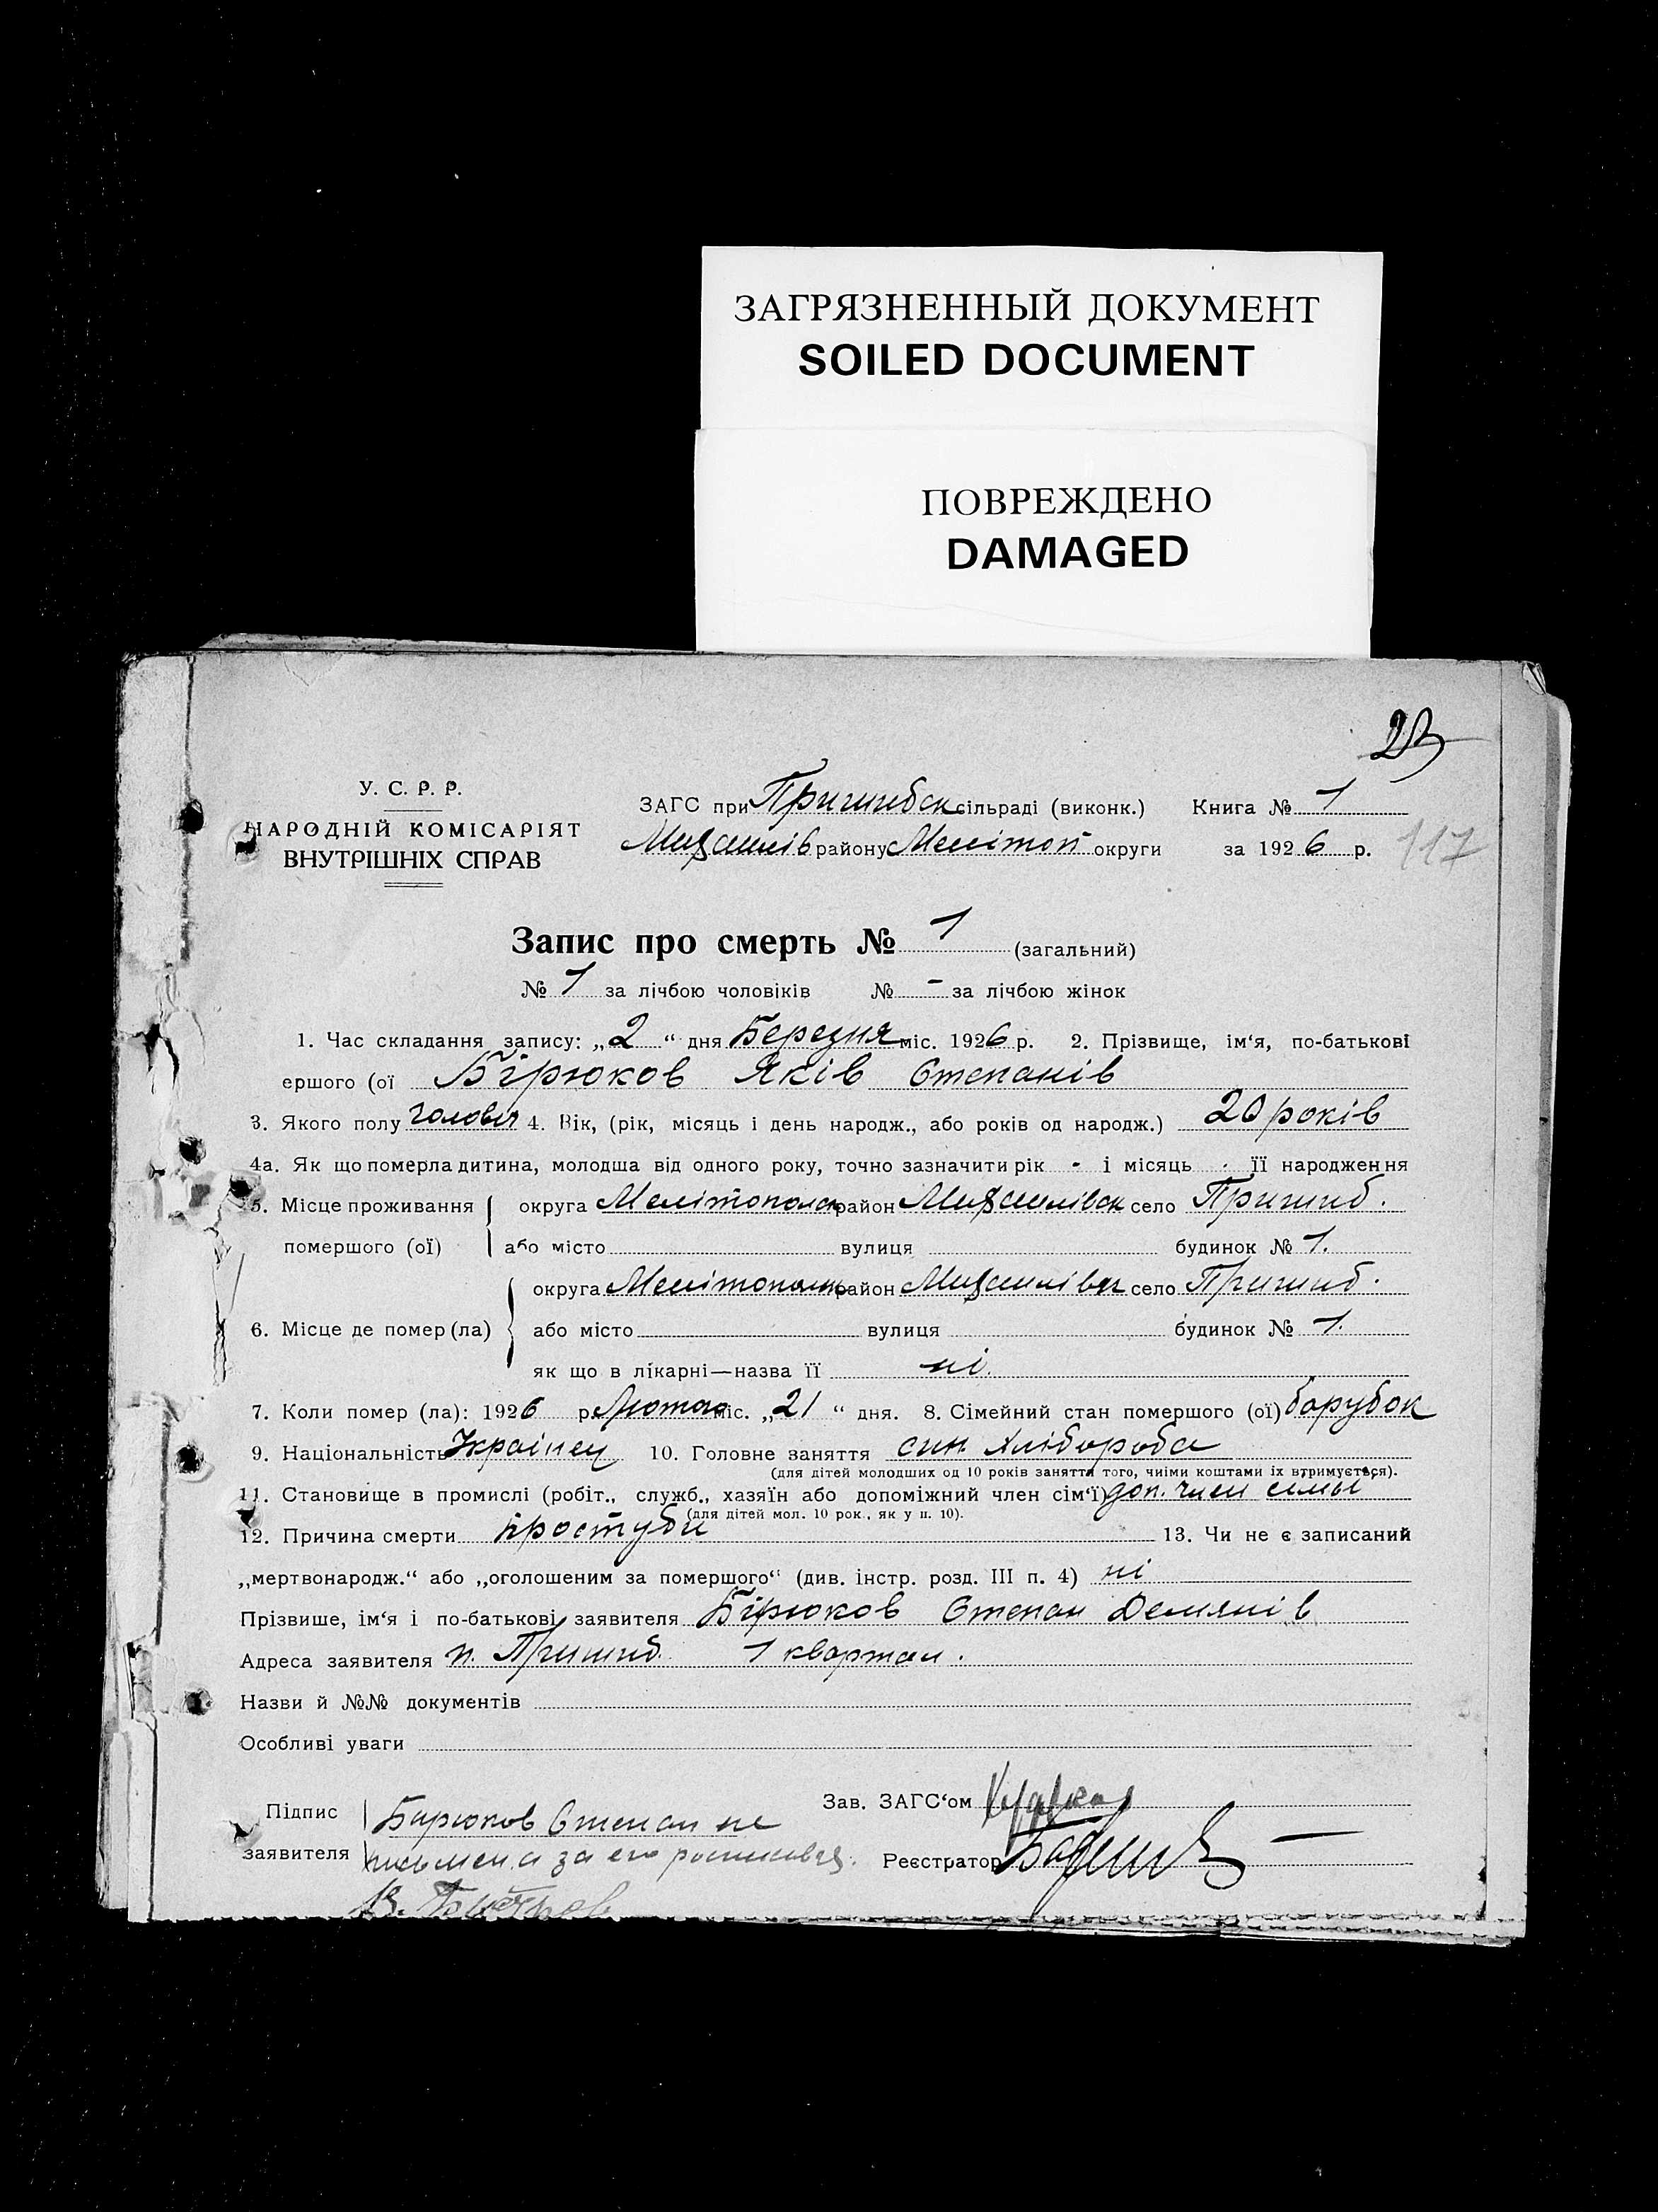 ЗАГРЯЗНЕННЫЙ ДОКУМЕНТ
SOILED DOCUMENT
ПОВРЕЖДЕНО
DAMAGED
У. С. Р. Р.
НАРОДНІЙ КОМІСАРІЯТ
ВНУТРІШНІХ СПРАВ
ЗАГС при Пришибск сільраді (виконк.) Книга № 1
Михайлів району Мелітоп округи за 1926 р. 117
Запис про смерть № 1 (загальний)
№ 1 за лічбою чоловіків № - за лічбою жінок
1. Час складання запису: „2“ дня Березня міс. 1926 р. 2. Прізвище, ім‘я, по-батькові
ершого (ої Бірюков Яків Степанів
3. Якого полу чоловіч 4. Вік, (рік, місяць і день народж., або років од народж.) 20 років
4а. Як що померла дитина, молодша від одного року, точно зазначити рік - і місяць - її народження
5. Місце проживання округа Мелітопольск район Михайлівск село Пришиб.
помершого (ої) або місто вулиця будинок № 1.
округа Мелітопольск район Михайлівск село Пришиб.
6. Місце де помер (ла) або місто вулиця будинок № 1.
як що в лікарні—назва її ні.
7. Коли помер (ла): 1926 р. Лютого міс. „21“ дня. 8. Сімейний стан помершого (ої) барубок
9. Національність Украінец 10. Головне заняття син хлібороба
(для дітей молодших од 10 років заняття того, чиїми коштами їх втримується).
11. Становище в промислі (робіт., служб., хазяїн або допоміжний член сім‘ї) доп. член сімьі
(для дітей мол. 10 рок., як у п. 10).
12. Причина смерти простуби 13. Чи не є записаний
„мертвонародж.“ або „оголошеним за помершого“ (див. інстр. розд. III п. 4) ні
Прізвише, ім‘я і по-батькові заявителя Бірюков Степан Демянів
Адреса заявителя п. Пришиб. 1 квартал.
Назви й №№ документів
Особливі уваги
Підпис Бирюков Степан не Зав. ЗАГС‘ом
заявителя письмен. а за его росписався. Реєстратор